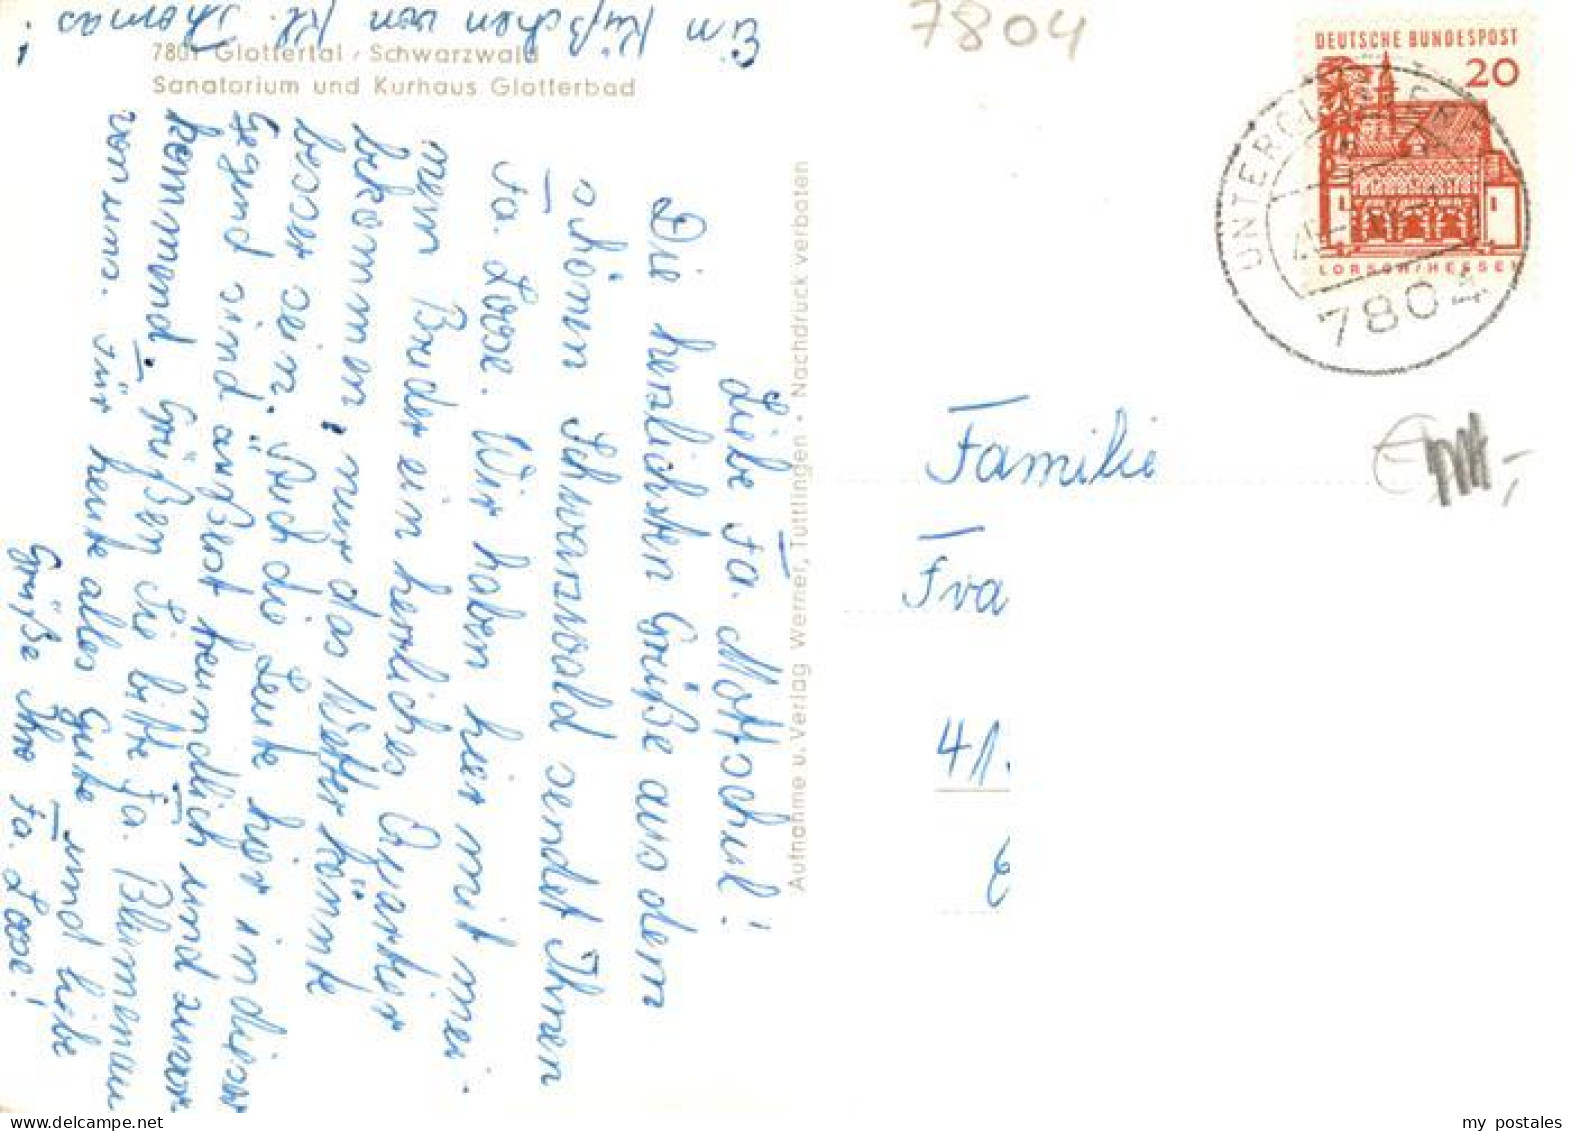 Ein Küßchen von Kl. Thomas!
7801 Glottertal / Schwarzwald
Sanatorium und Kurhaus Glotterbad
Liebe Fa. Mottschul!
Die herzlichsten Grüße aus dem
schönen Schwarzwald sendet Ihnen
Fa. Loose. Wir haben hier mit mei-
nem Bruder ein herrliches Quartier
bekommen, nur das Wetter könnte
besser sein. Auch die Leute hier in dieser
Gegend sind äußerst freundlich und zuvor-
kommend. Grüßen Sie bitte Fa. Blumenau
von uns. Für heute alles Gute und liebe
Grüße Ihre Fa. Loose!
Aufnahme u. Verlag Werner, Tuttlingen • Nachdruck verboten
7804
DEUTSCHE BUNDESPOST
20
LORSCH/HESSEN
7804
Familie
Fra
41.
my postales